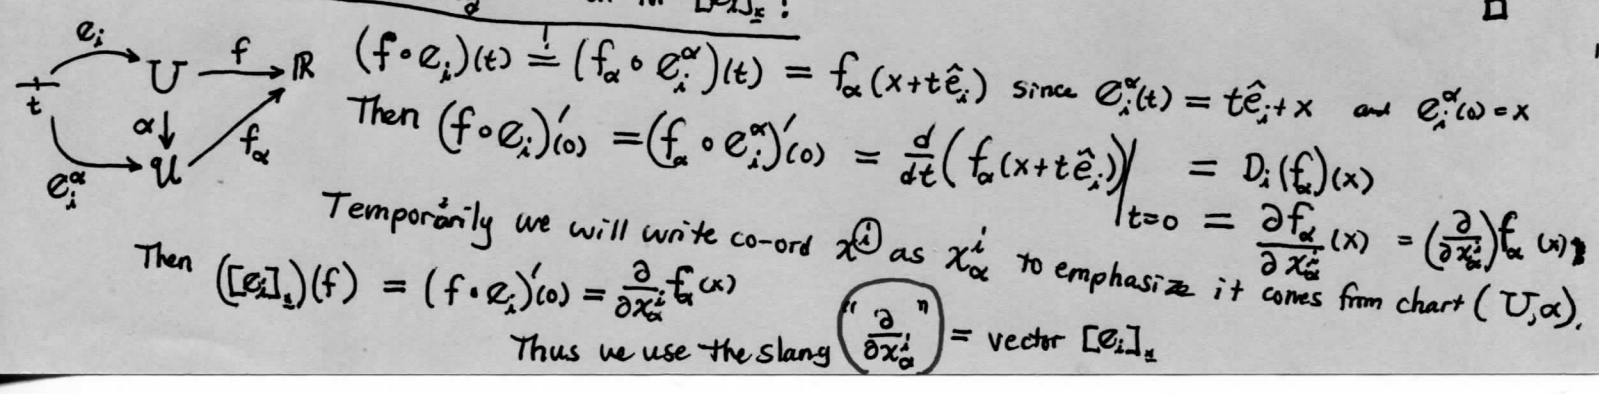 e_i
U f ℝ
t
α↓ f_α
e_i^α 𝒰
(f∘e_i)(t) = (f_α∘e_i^α)(t) = f_α(x+tê_i) since e_i^α(t) = tê_i+x and e_i^α(0)=x
Then (f∘e_i)′(0) = (f_α∘e_i^α)′(0) = d/dt(f_α(x+tê_i))|_{t=0} = D_i(f_α)(x)
= ∂f_α/∂x_α^i (x) = (∂/∂x_α^i)f_α(x);
Temporarily we will write co-ord x^(i) as x_α^i to emphasize it comes from chart (U,α).
Then ([e_i]_x)(f) = (f∘e_i)′(0) = ∂/∂x_α^i f_α(x)
Thus we use the slang "∂/∂x_α^i" = vector [e_i]_x